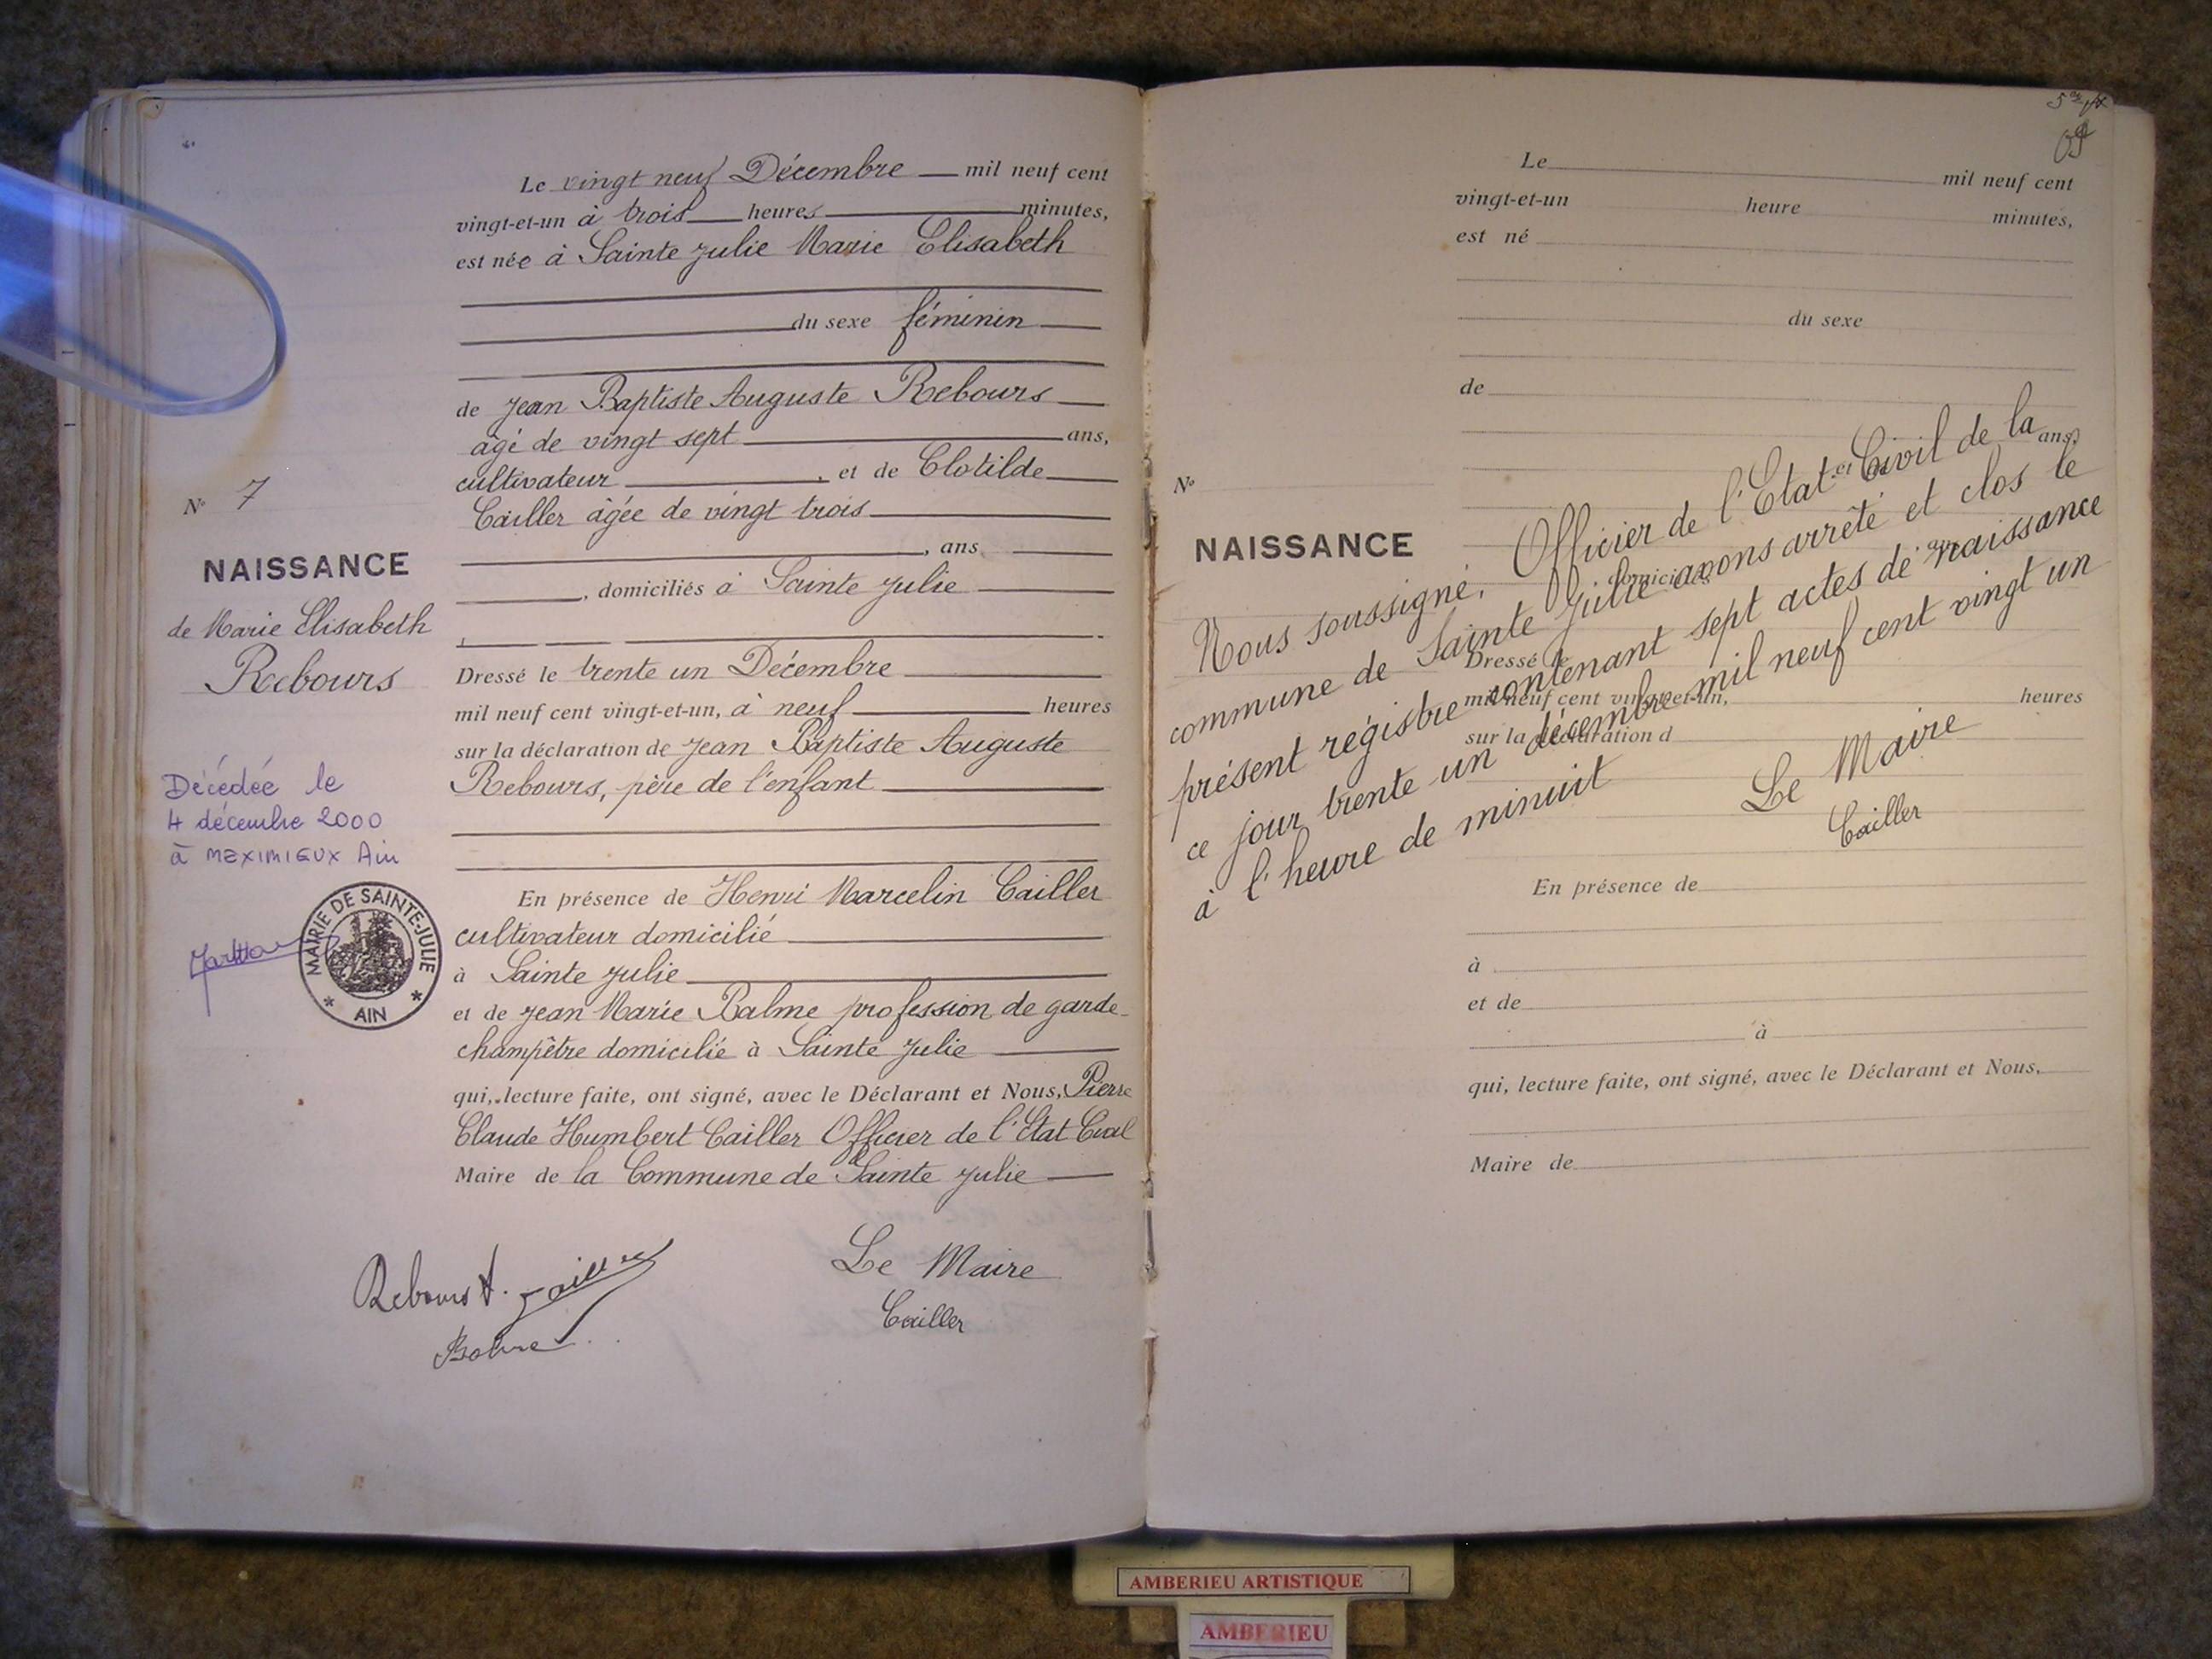 Le vingt neuf Décembre mil neuf cent
vingt-et-un à trois heures minutes,
est née à Sainte Julie Marie Elisabeth
du sexe féminin
de Jean Baptiste Auguste Rebours
âgé de vingt sept ans,
cultivateur, et de Clotilde
Cailler âgée de vingt trois
, ans
, domiciliés à Sainte Julie
Dressé le trente un Décembre
mil neuf cent vingt-et-un, à neuf heures
sur la déclaration de Jean Baptiste Auguste
Rebours, père de l'enfant
En présence de Henri Marcelin Cailler
cultivateur domicilié
à Sainte Julie
et de Jean Marie Balme profession de garde-
champêtre domicilié à Sainte Julie
qui, lecture faite, ont signé, avec le Déclarant et Nous, Pierre
Claude Humbert Cailler Officier de l'Etat Civil
Maire de la Commune de Sainte Julie
Rebours A. Cailler
Balme
Le Maire
Cailler
No 7
NAISSANCE
de Marie Elisabeth
Rebours
Décédée le
4 décembre 2000
à MEXIMIEUX Ain
MAIRIE DE SAINTE-JULIE
* AIN *
Le mil neuf cent
vingt-et-un heure minutes,
est né
du sexe
de
ans,
No
NAISSANCE
Nous soussigné, Officier de l'Etat Civil de la
commune de Sainte Julie avons arrêté et clos le
présent régistre contenant sept actes de naissance
ce jour trente un décembre mil neuf cent vingt un
à l'heure de minuit
Le Maire
Cailler
Dressé le
mil neuf cent vingt-et-un, heures
sur la déclaration d
En présence de
à
et de
à
qui, lecture faite, ont signé, avec le Déclarant et Nous,
Maire de
AMBERIEU ARTISTIQUE
AMBERIEU